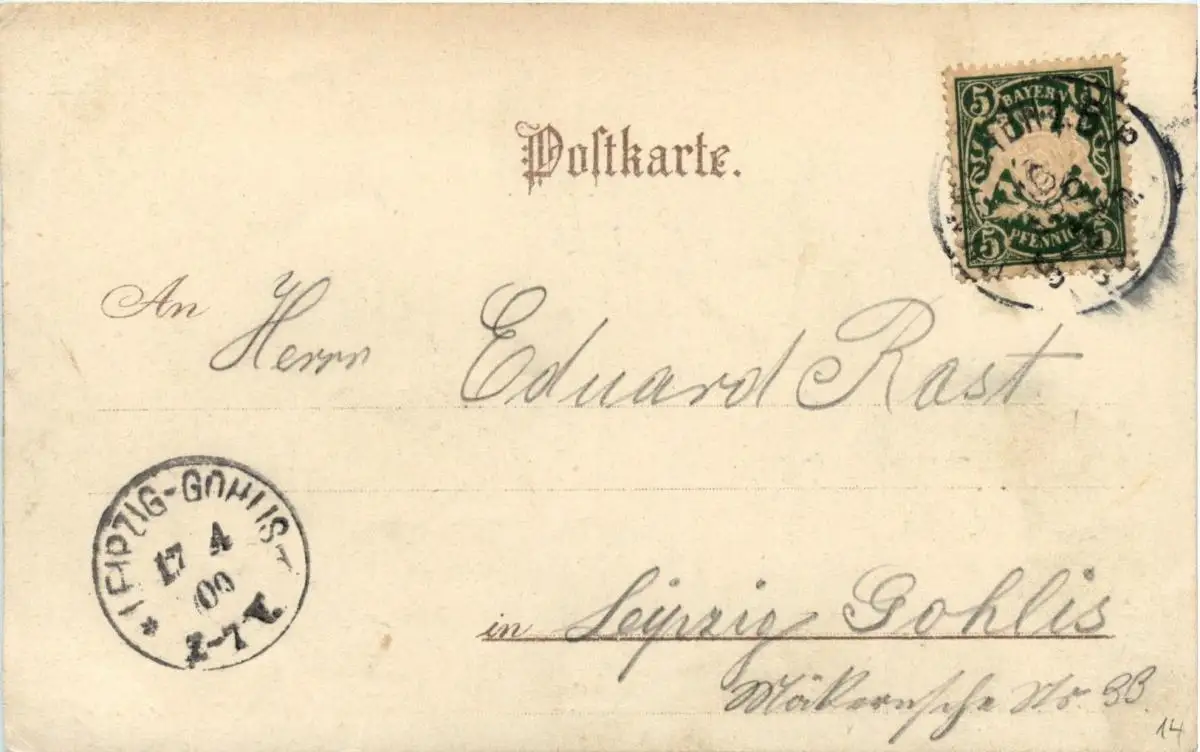 Postkarte.
5 BAYERN 5
5 PFENNIG 5
An Herrn Eduard Rast
LEIPZIG-GOHLIS
17 4
00
in Leipzig Gohlis
Mäkernsche Str. 33.
14